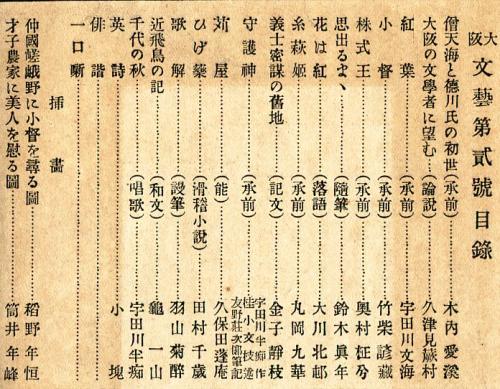 大阪 文藝第貳號目錄
僧天海と德川氏の初世(承前) 木內愛溪
大阪の文學者に望む(論說) 久津見蕨村
紅葉(承前) 宇田川文海
小督(承前) 竹柴諺藏
株式王(承前) 奧村柾兮
思出るまゝ(隨筆) 鈴木眞年
花は紅(落語) 大川北邨
糸萩姬(承前) 丸岡九華
義士密謀の舊地(記文) 金子靜枝
守護神(承前) 宇田川半痴作 桂小文枝述 友野莊次郞筆記
苅屋(能) 久保田蓬庵
ひげ籠(滑稽小說) 田村千歲
歌解(設筆) 羽山菊醉
近飛鳥の記(和文) 龜一山
千代の秋(唱歌) 宇田川半痴
英詩 小塊
俳諧
一口噺
挿畫
仲國嵯峨野に小督を尋る圖 稻野年恒
才子農家に美人を慰る圖 筒井年峰